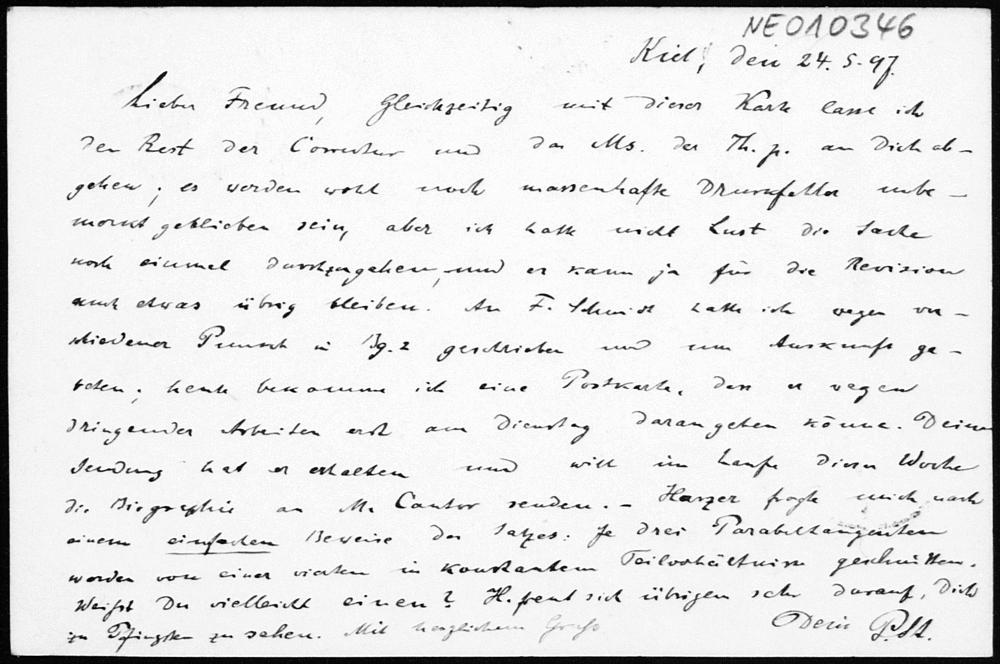 NEO10346
Kiel, den 24.5.97.
Lieber Freund, Gleichzeitig mit dieser Karte lasse ich
den Rest der Correctur und das Ms. der Th. p. an Dich ab-
gehen; es werden wohl noch massenhafte Druckfehler unbe-
merkt geblieben sein, aber ich hatte nicht Lust die Sache
noch einmal durchzugehen, und es kann ja für die Revision
auch etwas übrig bleiben. An F. Schmidt hatte ich wegen ver-
schiedener in Bg. 2 geschrieben und um Auskunft ge-
beten; heute bekomme ich eine Postkarte, dass er wegen
dringender Arbeiten erst am Dienstag darangehen könne. Deine
Sendung hat er erhalten und will im Laufe dieser Woche
die Biographie an M. Cantor senden. – Harzer fragte mich nach
einem einfachen Beweise des Satzes: Je drei Parabeltangenten
werden von einer vierten in konstantem Teilverhältnisse geschnitten.
Weißt Du vielleicht einen? H. freut sich übrigens sehr darauf, Dich
zu Pfingsten zu sehen. Mit herzlichem Gruß
Dein P. St.